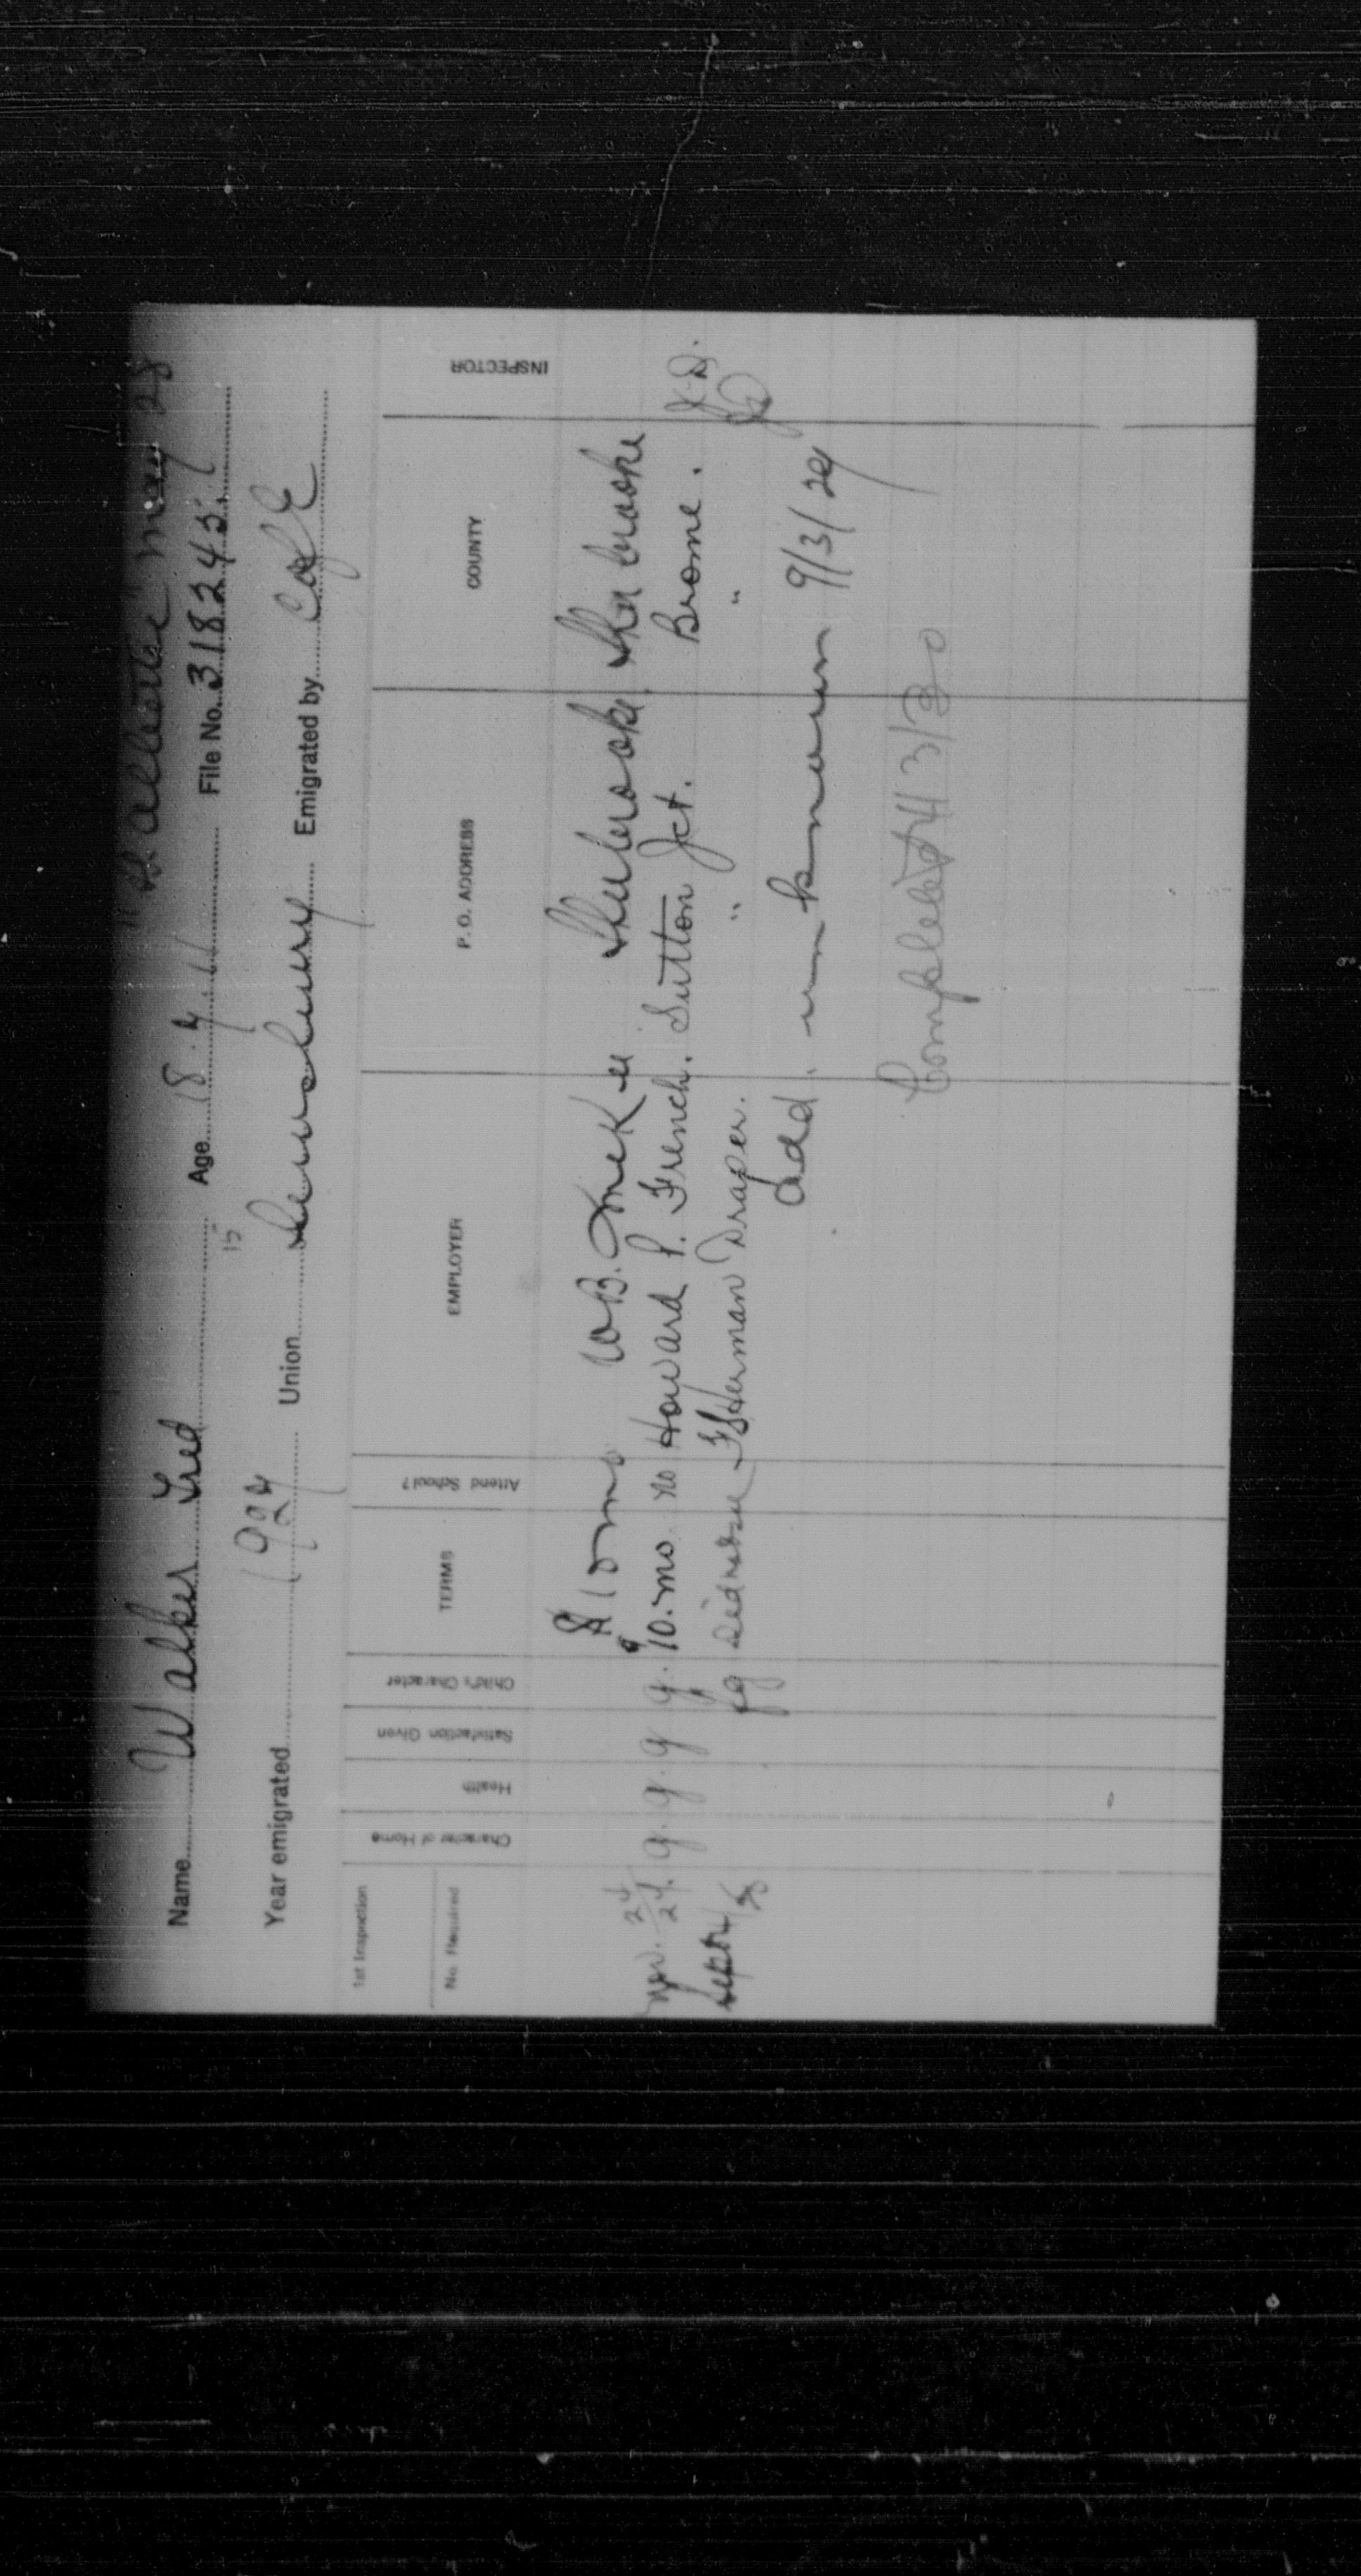 May 28
Name Walker Fred Age 18. File No. 318245
15
Year emigrated 1924 Union Emigrated by C of E
1st Inspection
No. Required
Character of Home
Health
Satisfaction Given
Child's Character
TERMS
Attend School?
EMPLOYER
P.O. ADDRESS
COUNTY
INSPECTOR
$10 mo W B. Sherbrooke Sherbrooke
Nov. 24/24. g. g. g g. 10. mo no Howard P. French. Sutton Jct. Brome. J.D.
Sept 4/25 fg Did not see Herman Draper. " "
Add. unknown 9/3/29
Completed